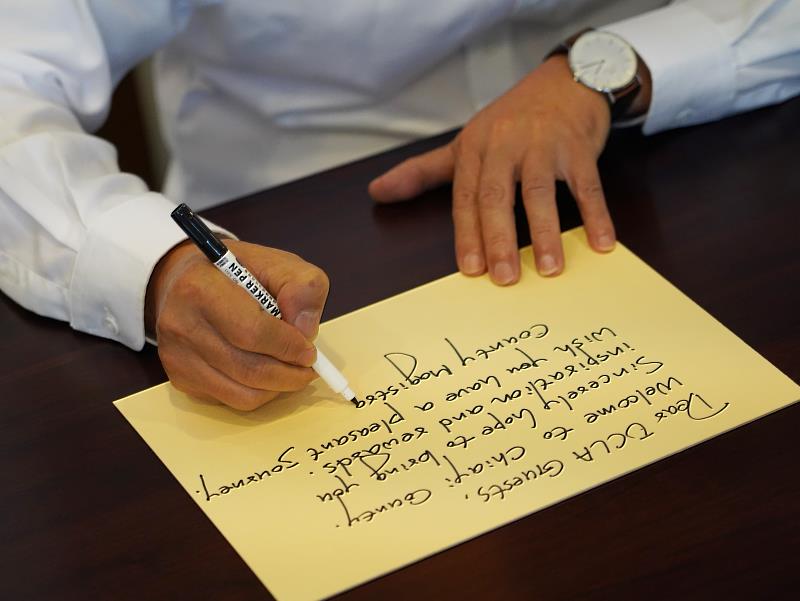 MARKER PEN
Dear DCLA Guests,
Welcome to Chiayi County.
Sincerely hope to bring you
inspiration and rewards.
Wish you have a pleasant journey.
County Magistra